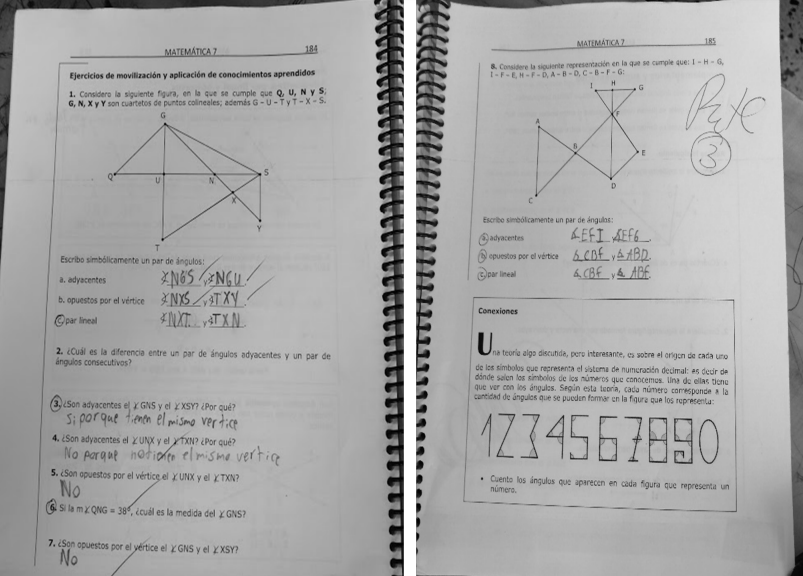 MATEMÁTICA 7 184
Ejercicios de movilización y aplicación de conocimientos aprendidos
1. Considero la siguiente figura, en la que se cumple que Q, U, N y S;
G, N, X y Y son cuartetos de puntos colineales; además G - U - T y T - X - S.
G
Q U N S
X
Y
T
Escribo simbólicamente un par de ángulos:
a. adyacentes ∡NGS y ∡NGU
b. opuestos por el vértice ∡NXS y ∡TXY
c. par lineal ∡NXT y ∡TXN
2. ¿Cuál es la diferencia entre un par de ángulos adyacentes y un par de
ángulos consecutivos?
3. ¿Son adyacentes el ∡GNS y el ∡XSY? ¿Por qué?
Si porque tienen el mismo vertice
4. ¿Son adyacentes el ∡UNX y el ∡TXN? ¿Por qué?
No porque no tienen el mismo vertice
5. ¿Son opuestos por el vértice el ∡UNX y el ∡TXN?
No
6. Si la m∡QNG = 38°, ¿cuál es la medida del ∡GNS?
7. ¿Son opuestos por el vértice el ∡GNS y el ∡XSY?
No
MATEMÁTICA 7 185
8. Considero la siguiente representación en la que se cumple que: I - H - G,
I - F - E, H - F - D, A - B - D, C - B - F - G:
I H G
F
A
B E
D
C
3
Escribo simbólicamente un par de ángulos:
a. adyacentes ∡EFI y ∡EFG
b. opuestos por el vértice ∡CBF y ∡ABD
c. par lineal ∡CBF y ∡ABF
Conexiones
Una teoría algo discutida, pero interesante, es sobre el origen de cada uno
de los símbolos que representa el sistema de numeración decimal; es decir de
dónde salen los símbolos de los números que conocemos. Una de ellas tiene
que ver con los ángulos. Según esta teoría, cada número corresponde a la
cantidad de ángulos que se pueden formar en la figura que los representa:
1234567890
• Cuento los ángulos que aparecen en cada figura que representa un
número.